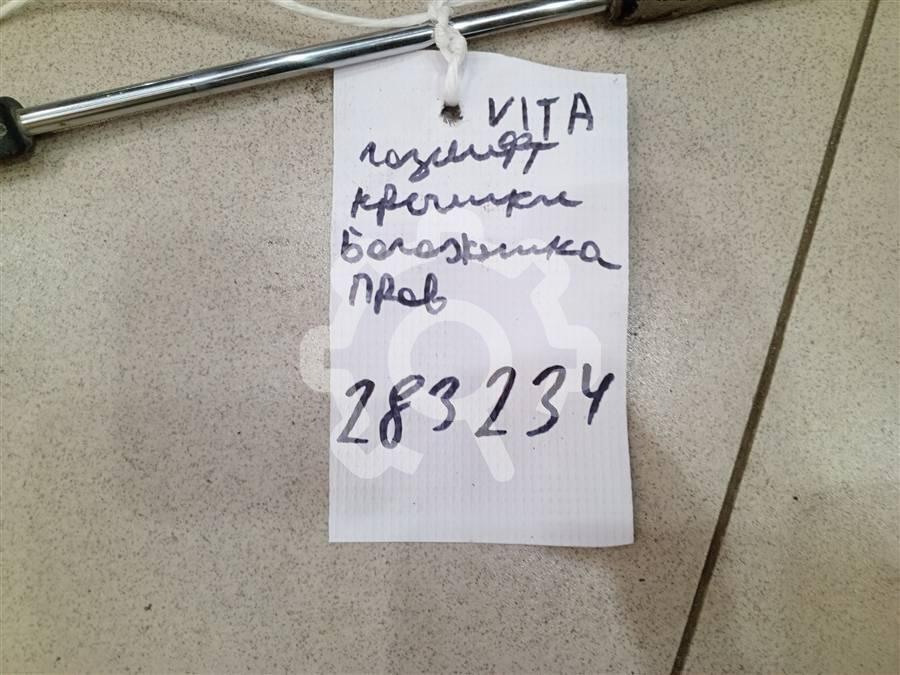 VITA
газлифт
крышки
Багажника
прав
283234